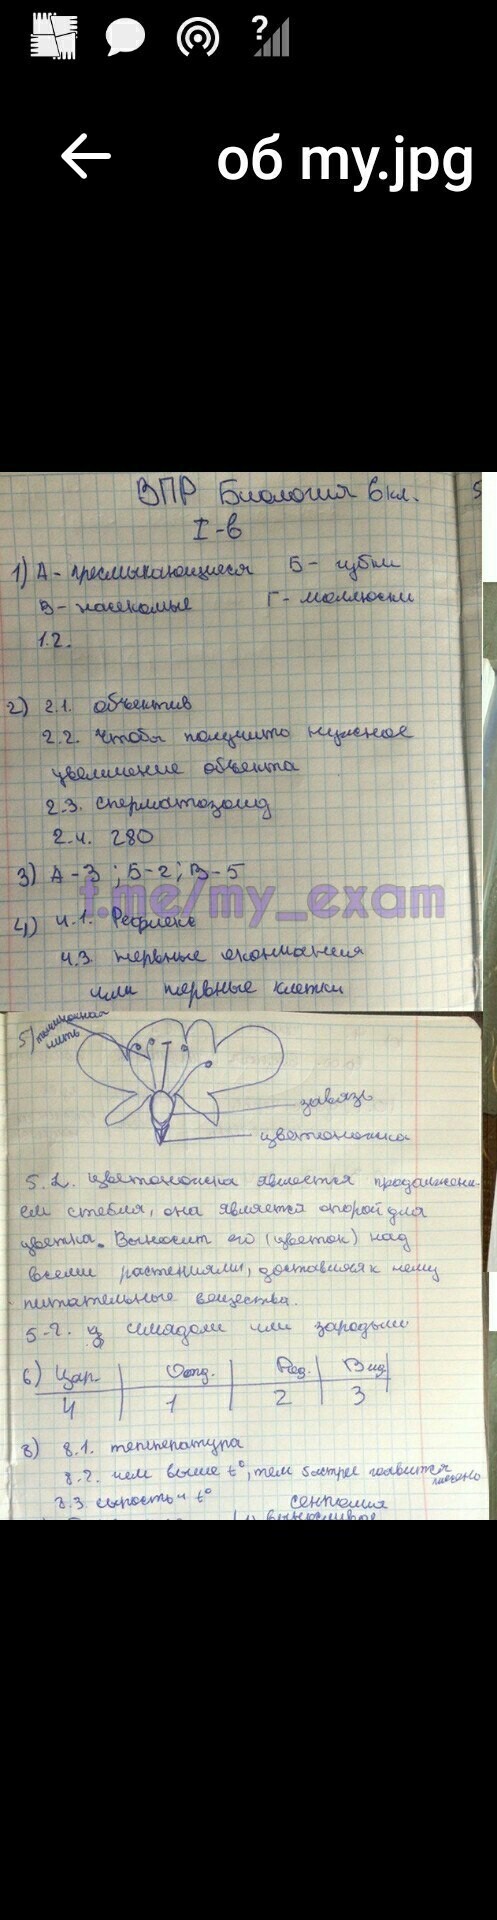 ?
об my.jpg
ВПР Биология 6 кл.
I-в
1) А- пресмыкающиеся Б- губки
В- насекомые Г- моллюски
1.2.
2) 2.1. объектив
2.2. Чтобы получить нужное
увеличение объекта
2.3. сперматозоид
2.4. 280
3) А-3; Б-2; В-5
t.me/my_exam
4) 4.1. Рефлекс
4.3 нервные окончания
или нервные клетки
5) тычиночная
нить
завязь
цветоножка
цветоножка является продолжени-
ем стебля, она является опорой для
цветка. Выносит его (цветок) над
всеми растениями, доставляя к нему
питательные вещества.
5-?. или зародыш
6) Цар. Отд. Род. Вид
4 1 2 3
8) 8.1. температура
8.2. чем выше t°, тем быстрее появится
плесень
8.3. сырость и t° сенполия
выносливое